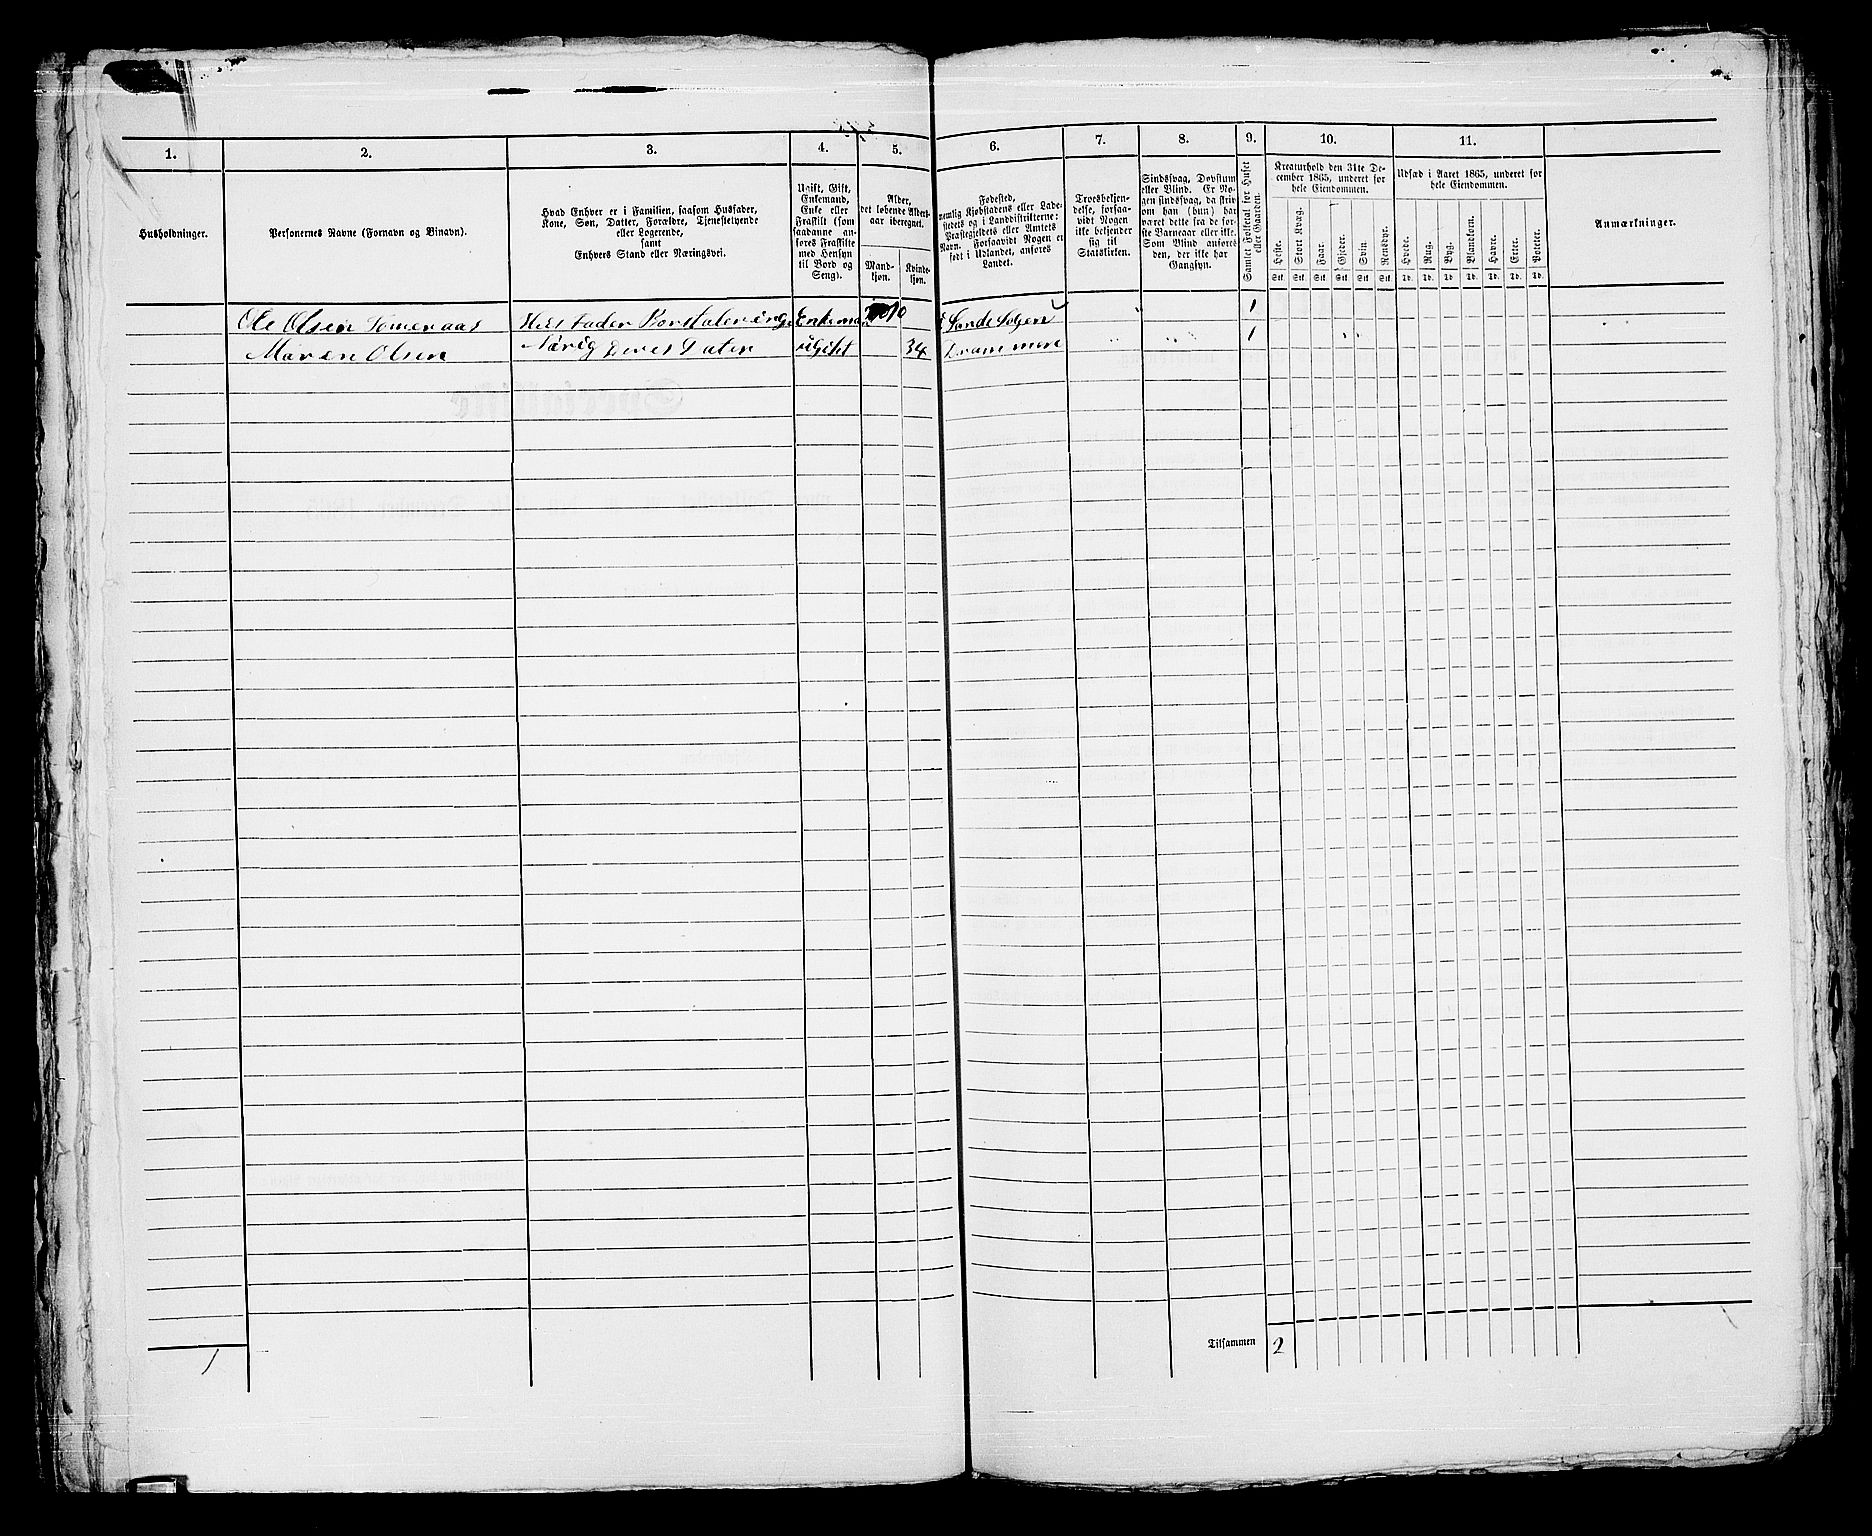 1.
2.
3.
4.
5.
6.
7.
8.
9.
10.
11.
Husholdninger.
Personernes Navne (Fornavn og Binavn).
Hvad Enhver er i Familien, saasom Husfader,
Kone, Søn, Datter, Forældre, Tjenestetyende
eller Logerende,
samt
Enhvers Stand eller Næringsvei.
Ugift, Gift,
Enkemand,
Enke eller
Fraskilt (som
saadanne an-
føres Fraskilte
med Hensyn
til Bord og
Seng).
Alder,
det løbende Alders-
aar iberegnet.
Mand-
kjøn.
Kvinde-
kjøn.
Fødested,
nemlig Kjøbstadens eller Lade-
stedets og i Landdistrikterne:
Præstegjeldets eller Amtets
Navn. Forsaavidt Nogen er
født i Udlandet, anføres
Landet.
Troesbekjen-
delse, forsaa-
vidt Nogen
ikke bekjender
sig til
Statskirken.
Sindssvag, Døvstum
eller Blind. Er No-
gen sindssvag, da skriv
om han (hun) har
været dette fra de før-
ste Barneaar eller ikke.
Som Blind anføres
den, der ikke har
Gangsyn.
Samlet Folketal for Huset
eller Gaarden.
Kreaturhold den 31te De-
cember 1865, underet for
hele Eiendommen.
Heste.
Stort Kvæg.
Faar.
Gjeder.
Svin.
Rensdyr.
Stk. Stk. Stk. Stk. Stk. Stk.
Udsæd i Aaret 1865, underet for
hele Eiendommen.
Hvede.
Rug.
Byg.
Blandkorn.
Havre.
Erter.
Poteter.
Td. Td. Td. Td. Td. Td. Td.
Anmærkninger.
Ole Olsen Enkema 1
Maren Olsen Deres Dater ugivt 34 Drammen 1
Tilsammen 2
1